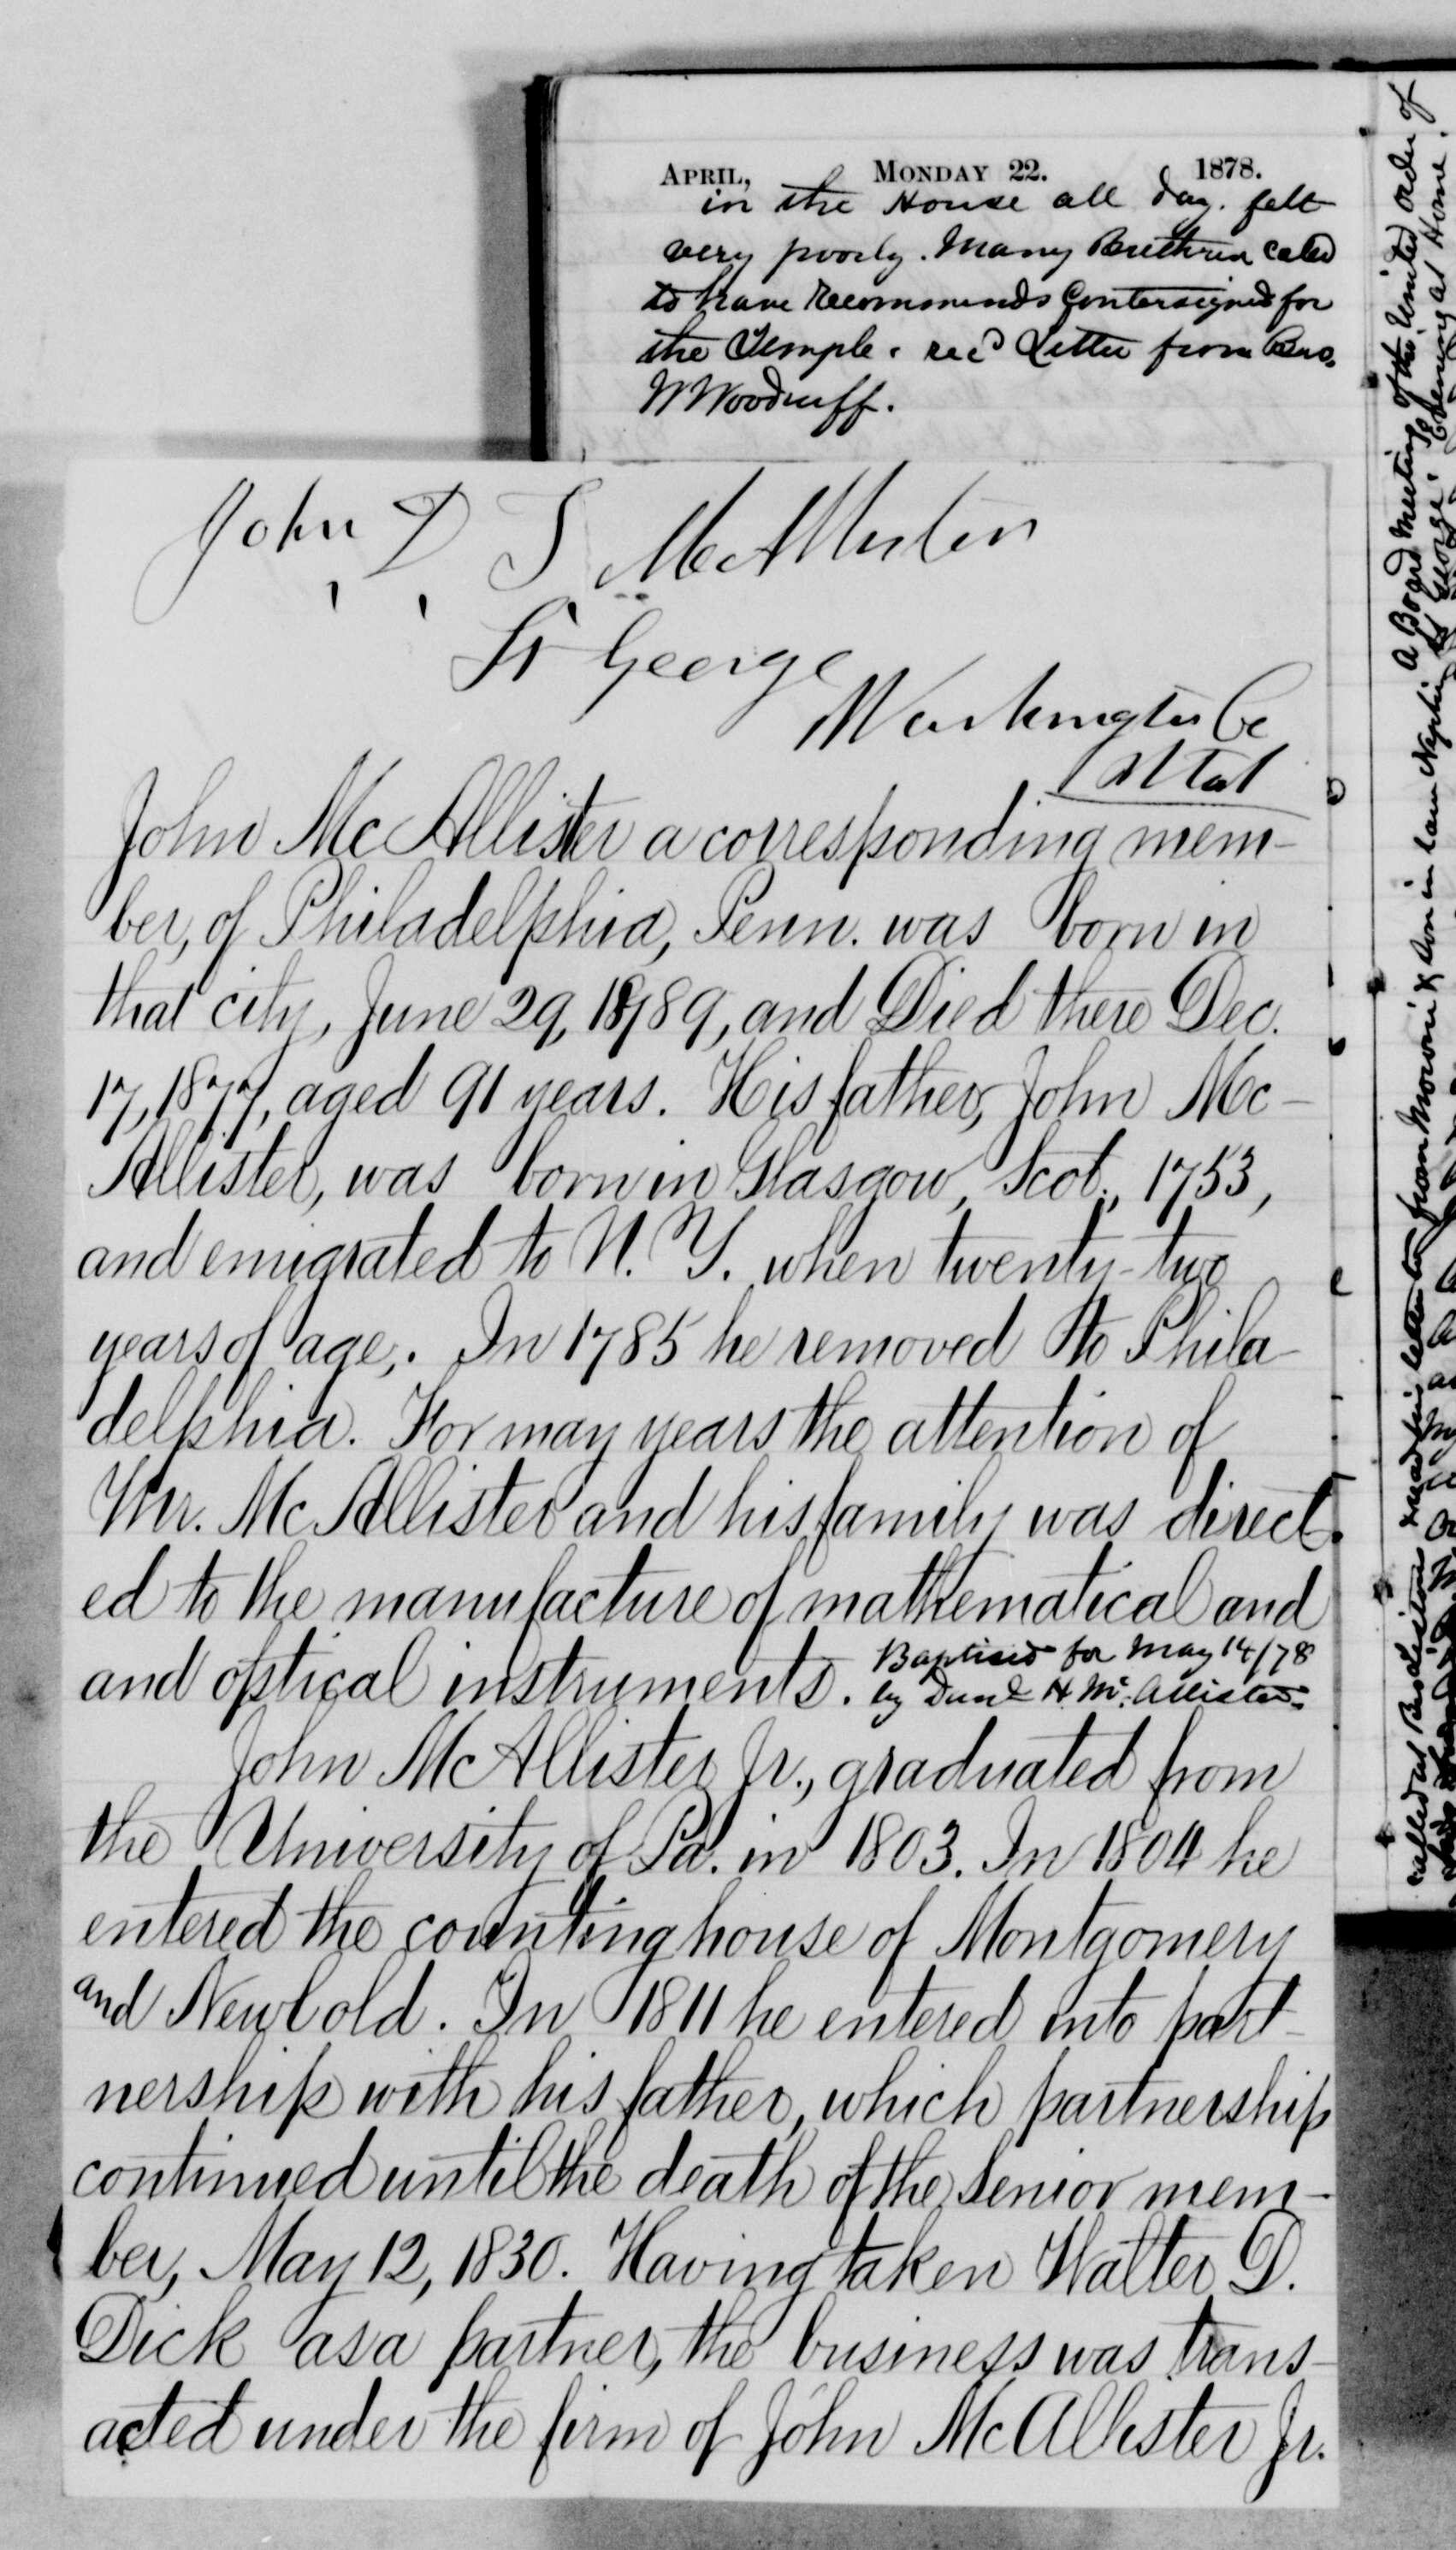 APRIL, MONDAY 22. 1878.
in the House all day. felt
very poorly. Many Brethren caled
to have Recommends Contersigned for
the Temple. recd Letter from Bro.
W Woodruff.
John D T McAllister
St George
Washington Co
Utah
John McAllister a corresponding mem-
ber, of Philadelphia, Penn. was born in
that city, June 29, 1789, and Died there Dec.
17, 1877, aged 91 years. His father, John Mc-
Allister, was born in Glasgow, Scot., 1753,
and emigrated to N. Y. when twenty-two
years of age,. In 1785 he removed to Phila-
delphia. For may years the attention of
Mr. McAllister and his family was direct-
ed to the manufacture of mathematical and
and optical instruments. Baptised for May 14/78
by Danl H Mc.Allister.
John McAllister Jr., graduated from
the University of Pa. in 1803. In 1804 he
entered the counting house of Montgomery
and Newbold. In 1811 he entered into part-
nership with his father, which partnership
continued until the death of the Senior mem-
ber, May 12, 1830. Having taken Walter D.
Dick as a partner, the business was trans-
acted under the firm of John McAllister Jr.
called at Bro letter two from Moroni & Son in law Nephi A Board Meeting of the United order of
St George. Evening at Home.